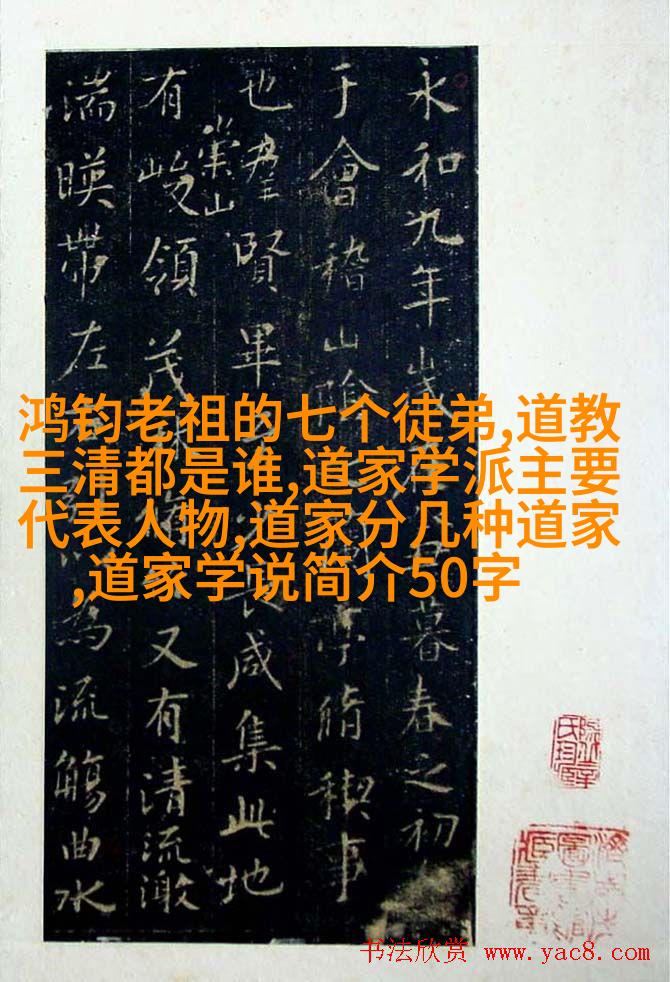 永和九年歲暮春之初
于會稽山陰亭脩稧事
也羣賢畢咸集此地
崇山
有峻領茂又有清流激
湍暎帶左為流觴曲水
鸿钧老祖的七个徒弟,道教
三清都是谁,道家学派主要
代表人物,道家分几种道家
,道家学说简介50字
书法欣赏 www.yac8.com